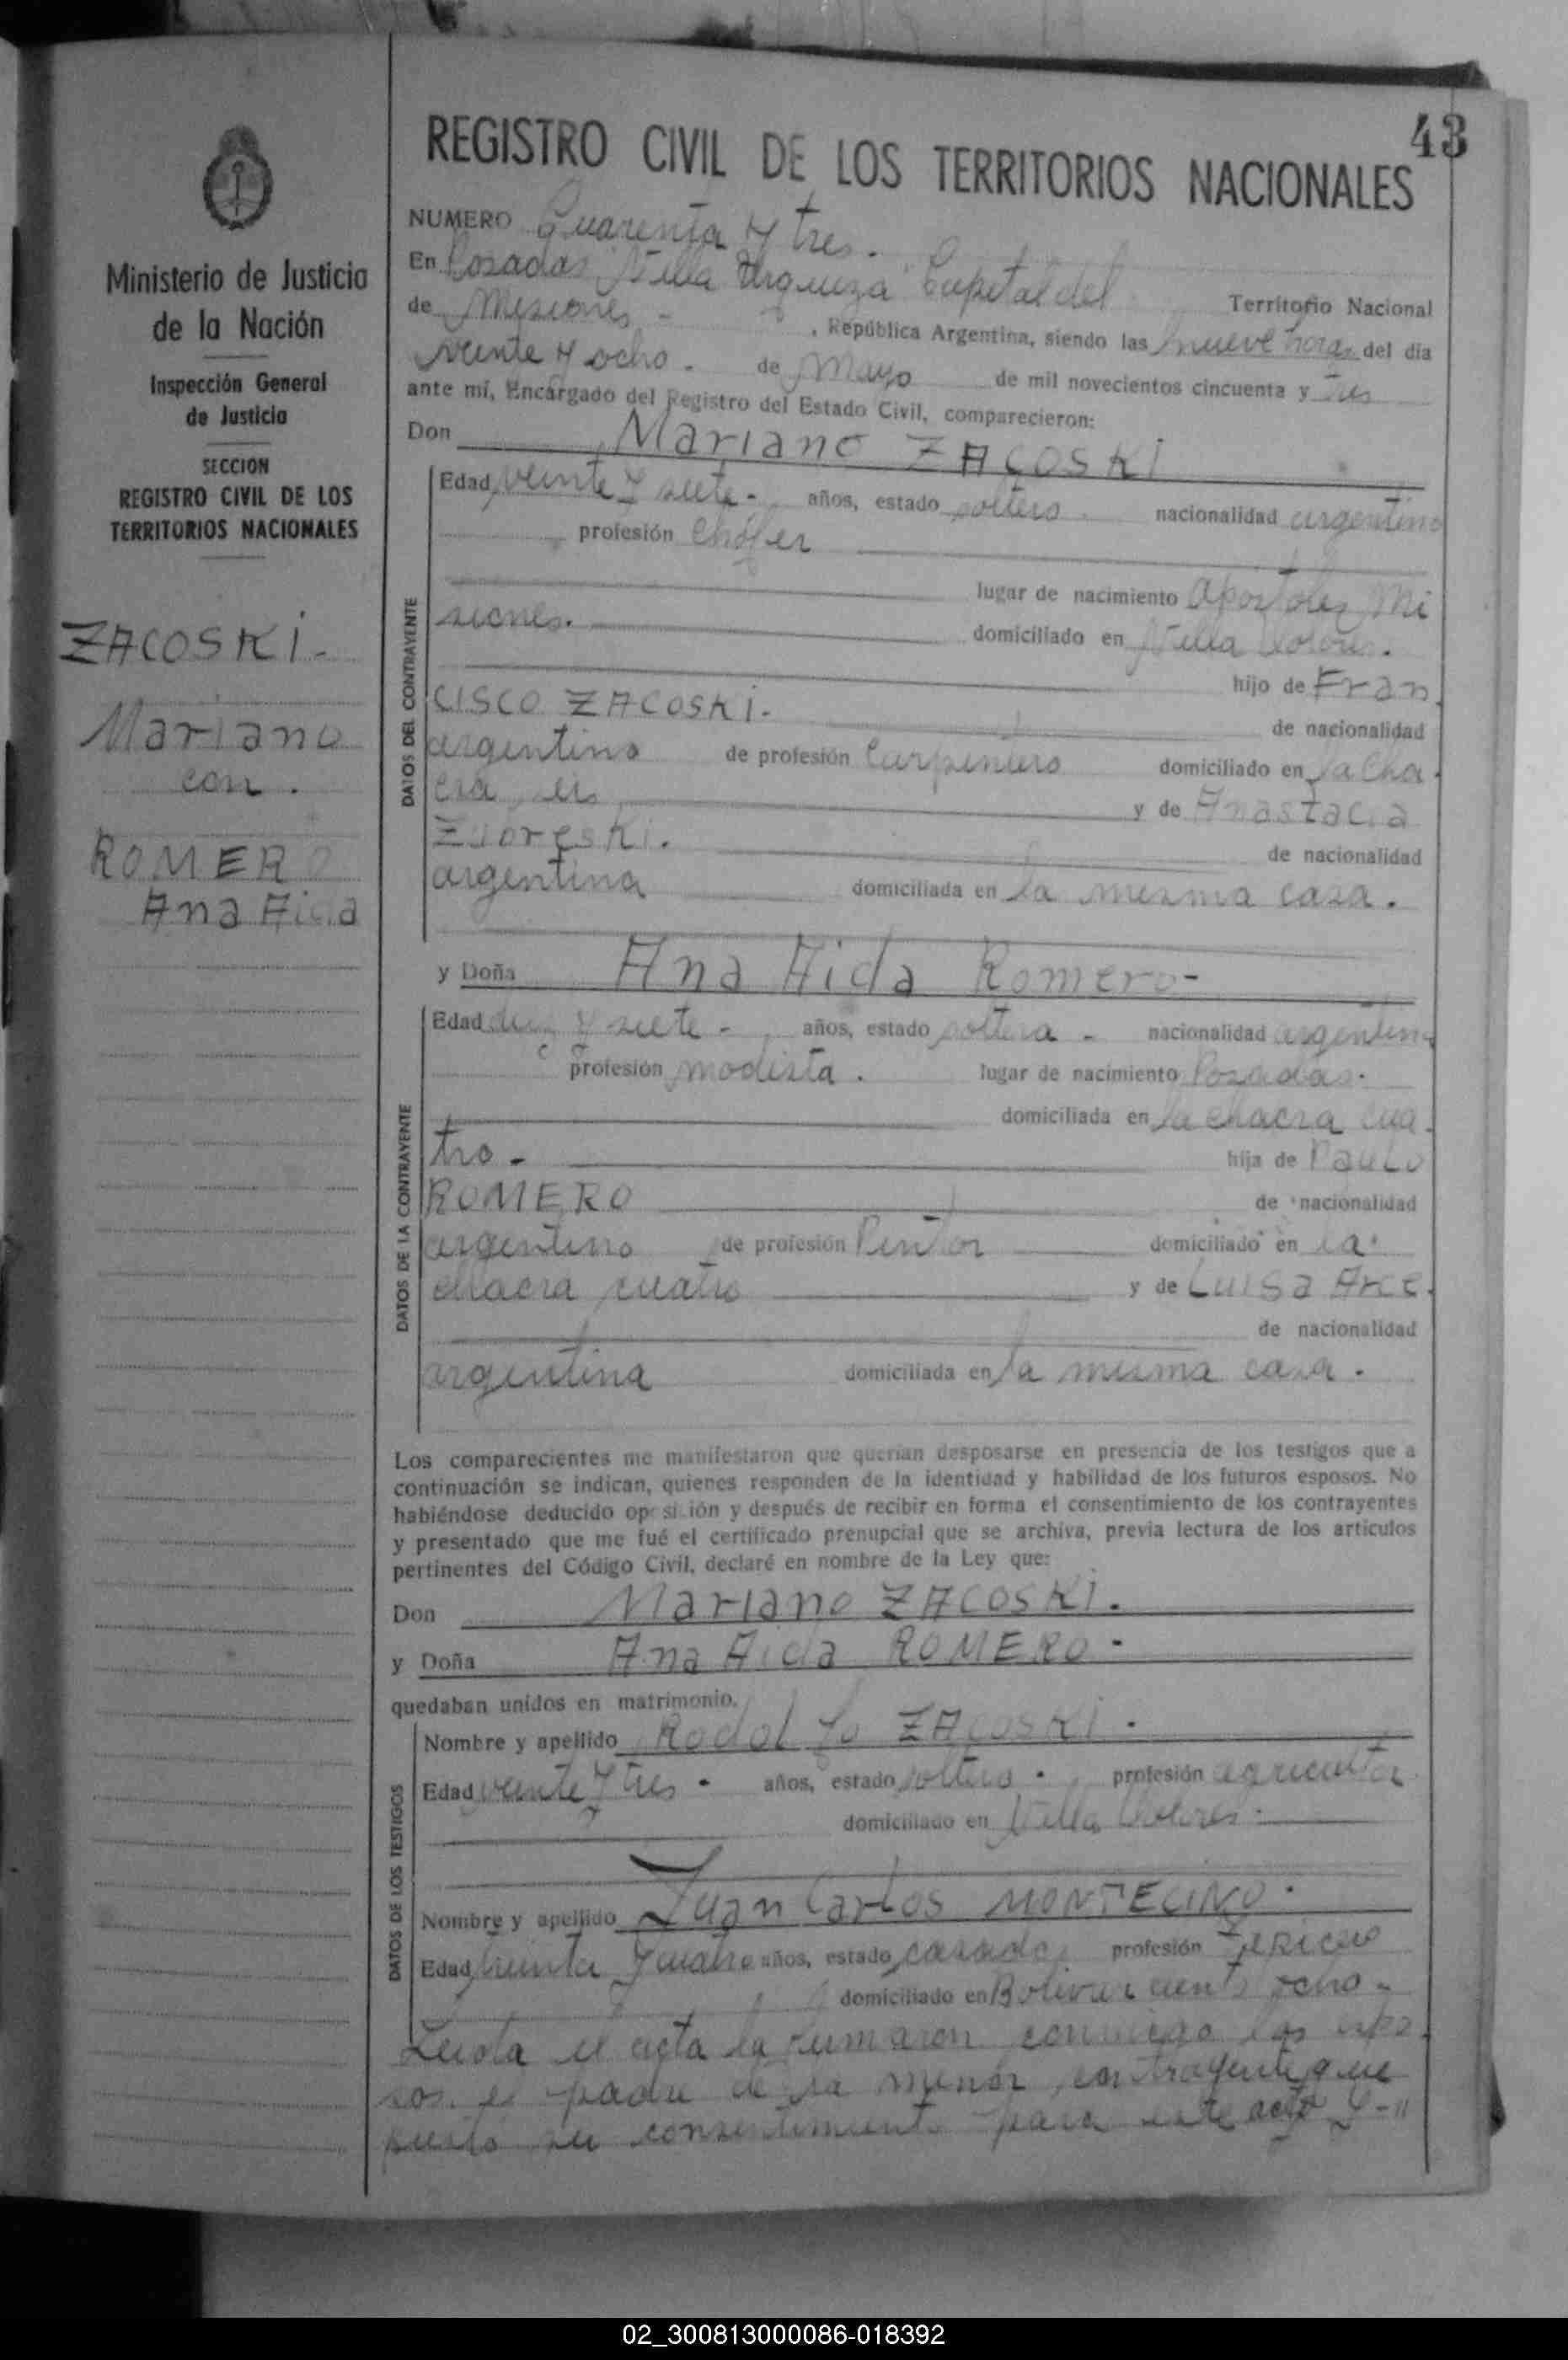 43
REGISTRO CIVIL DE LOS TERRITORIOS NACIONALES
Ministerio de Justicia
de la Nación
Inspección General
de Justicia
SECCION
REGISTRO CIVIL DE LOS
TERRITORIOS NACIONALES
ZACOSKI.
Mariano
con.
ROMERO
Ana Aida
NUMERO Cuarenta y tres.
En Posadas Villa Urquiza Capital del Territorio Nacional
de Misiones - , República Argentina, siendo las nueve horas del día
veinte y ocho. de Mayo de mil novecientos cincuenta y tres
ante mí, Encargado del Registro del Estado Civil, comparecieron:
Don Mariano ZACOSKI
DATOS DEL CONTRAYENTE
Edad veinte y siete - años, estado soltero nacionalidad argentino
profesión chófer
lugar de nacimiento Apostoles Mi
siones. domiciliado en Villa Dolores.
hijo de Fran
CISCO ZACOSKI. de nacionalidad
argentino de profesión Carpintero domiciliado en la cha
cra y de Anastacia
de nacionalidad
argentina domiciliada en la misma casa.
y Doña Ana Aida Romero-
DATOS DE LA CONTRAYENTE
Edad diez y siete - años, estado soltera - nacionalidad argentina
profesión modista. lugar de nacimiento Posadas.
domiciliada en la chacra cua
tro - hija de Paulo
ROMERO de nacionalidad
argentino de profesión Pintor domiciliado en la
chacra cuatro y de Luisa Arce.
de nacionalidad
argentina domiciliada en la misma casa.
Los comparecientes me manifestaron que querían desposarse en presencia de los testigos que a
continuación se indican, quienes responden de la identidad y habilidad de los futuros esposos. No
habiéndose deducido oposición y después de recibir en forma el consentimiento de los contrayentes
y presentado que me fué el certificado prenupcial que se archiva, previa lectura de los artículos
pertinentes del Código Civil, declaré en nombre de la Ley que:
Don Mariano ZACOSKI.
y Doña Ana Aida ROMERO-
quedaban unidos en matrimonio.
DATOS DE LOS TESTIGOS
Nombre y apellido Rodolfo ZACOSKI.
Edad veinte y tres - años, estado soltero. profesión agricultor
domiciliado en Villa Dolores.
Nombre y apellido Juan Carlos MONTECINO.
Edad treinta y cuatro años, estado casado, profesión
domiciliado en Bolivar ciento ocho-
Leida el acta la firmaron conmigo los espo
sos. el padre de la menor contrayente que
su consentimiento para este acto y-"
02_300813000086-018392